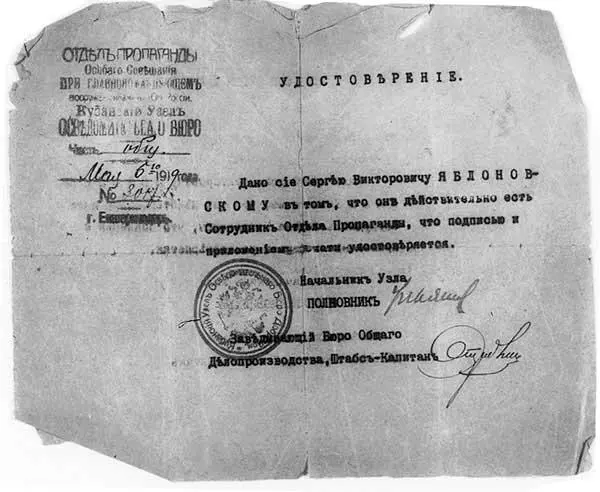 ОТДѢЛЪ ПРОПАГАНДЫ
Особаго Совѣщанія
ПРИ ГЛАВНОКОМАНДУЮЩЕМЪ
Кубанскій Узелъ
ОСВѢДОМИТЕЛЬНАГО БЮРО
Часть общ.
Мая 6го 1919 года
№
г.
УДОСТОВѢРЕНІЕ.
Дано сіе Сергѣю Викторовичу ЯБЛОНОВ-
СКОМУ въ томъ, что онъ дѣйствительно есть
Сотрудникъ Отдѣла Пропаганды, что подписью и
приложеніемъ печати удостовѣряется.
Начальникъ Узла
ПОЛКОВНИКЪ
Завѣдывающій Бюро Общаго
Дѣлопроизводства, Штабсъ-Капитанъ